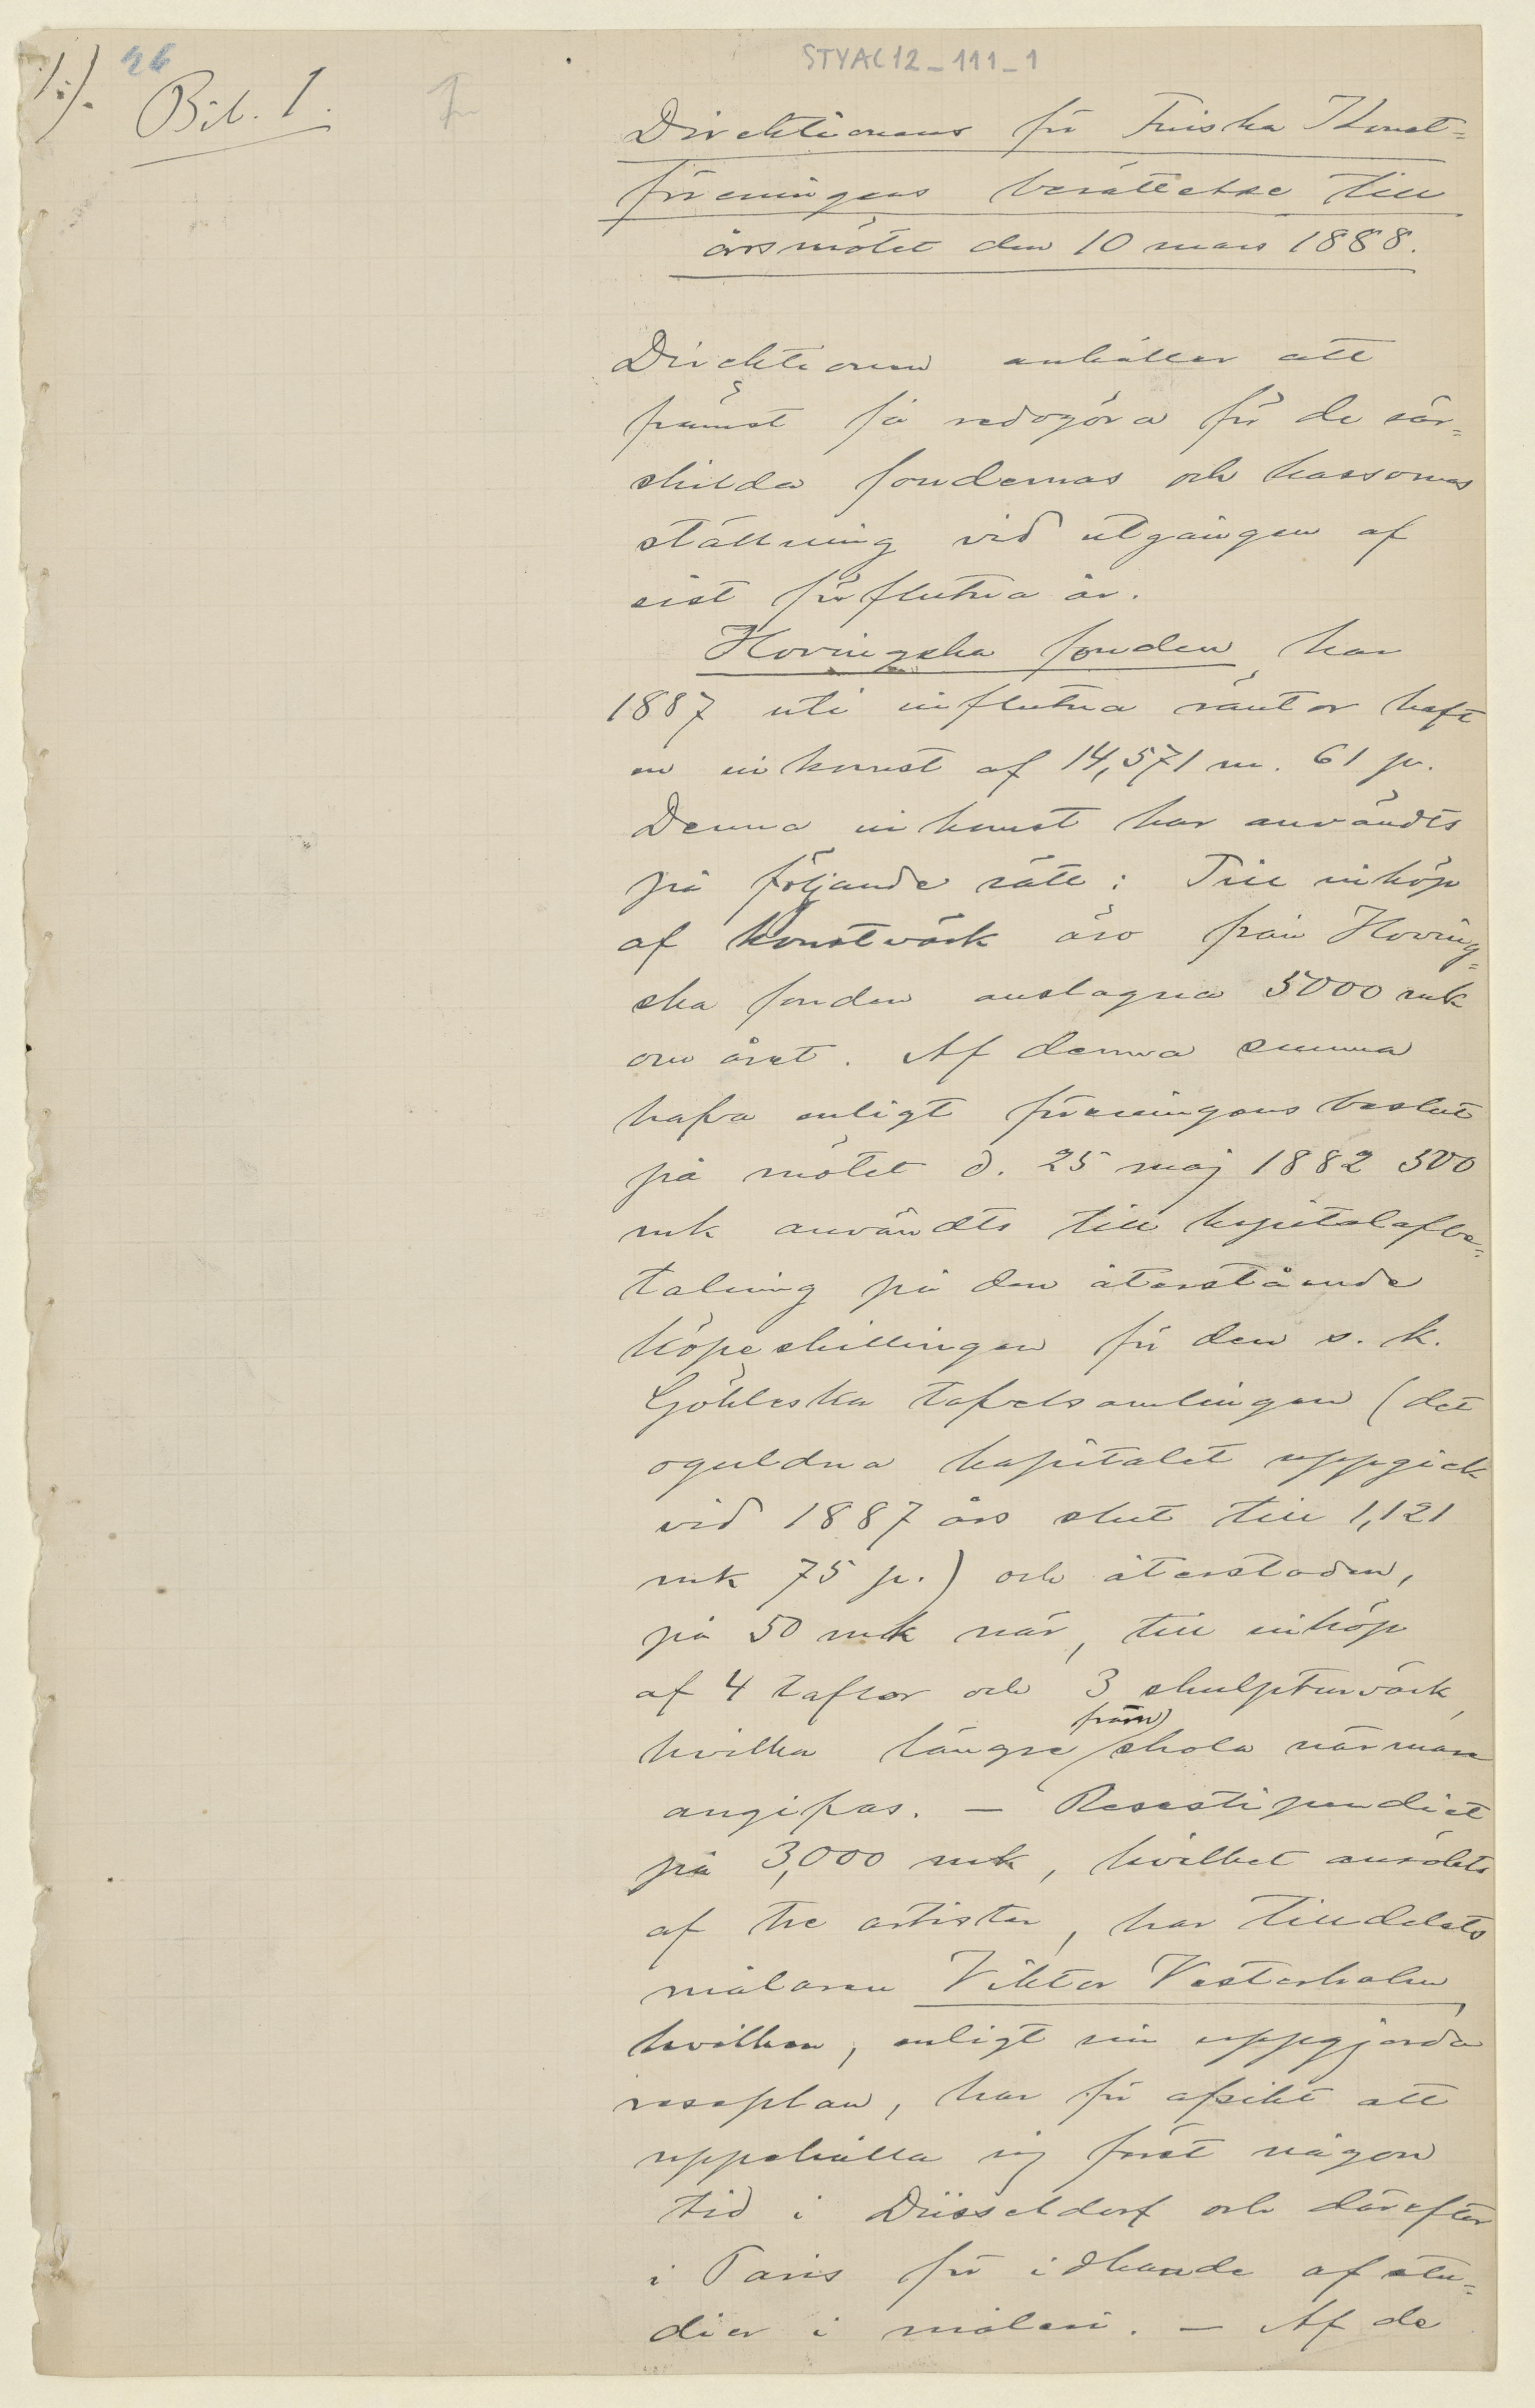 1:). 26
Bil. 1.
STYAC12_111_1
Direktionens för Finska Konst=
föreningens berättelse till
årsmötet den 10 mars 1888.
Direktionen anhåller att
främst få redogöra för de sär=
skilda fondernas och kassornas
ställning vid utgången af
sist förflutna år.
Hovingska fonden har
1887 uti influtna räntor haft
en inkomst af 14,571 m. 61 p.
Denna inkomst har användts
på följande sätt: Till inköp
af konstvärk äro från Hoving=
ska fonden anslagna 5000 mk
om året. Af denna summa
hafva enligt föreningens beslut
på mötet d. 25 maj 1882 500
mk användts till kapitalafbe=
talning på den återstående
köpeskillingen för den s. k.
Göhleska tafvelsamlingen (det
oguldna kapitalet uppgick
vid 1887 års slut till 1,121
mk 75 p.) och återstoden,
på 50 mk när, till inköp
af 4 taflor och 3 skulpturvärk,
hvilka längre fram skola närmare
angifvas. — Resestipendiet
på 3,000 mk, hvilket ansökts
af tre artister, har tilldelats
målaren Viktor Vesterholm,
hvilken, enligt sin uppgjorda
reseplan, har för afsikt att
uppehålla sig först någon
tid i Düsseldorf och därefter
i Paris för idkande af stu=
dier i måleri. — Af de